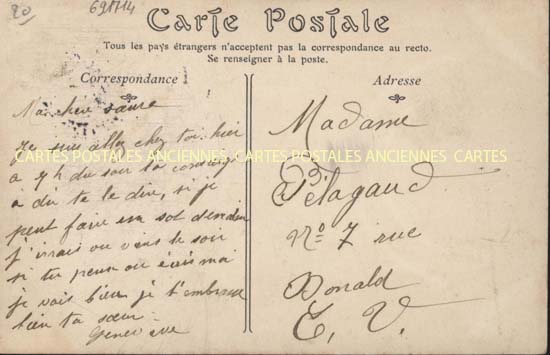 20
691714
Carte Postale
Tous les pays étrangers n'acceptent pas la correspondance au recto.
Se renseigner à la poste.
Correspondance
Adresse
Ma chère sœur
Je suis allez chez toi hier
a 7 h du soir la concierg
a du te le dire, si je
peut faire un sot demain
j'irrais ou viens le soir
si tu peux ou écris moi
je vais bien je t'embrasse
bien ta sœur
Genevieve
Madame
Pelagaud
No 7 rue
Donald
E. V.
CARTES POSTALES ANCIENNES CARTES POSTALES ANCIENNES CARTES